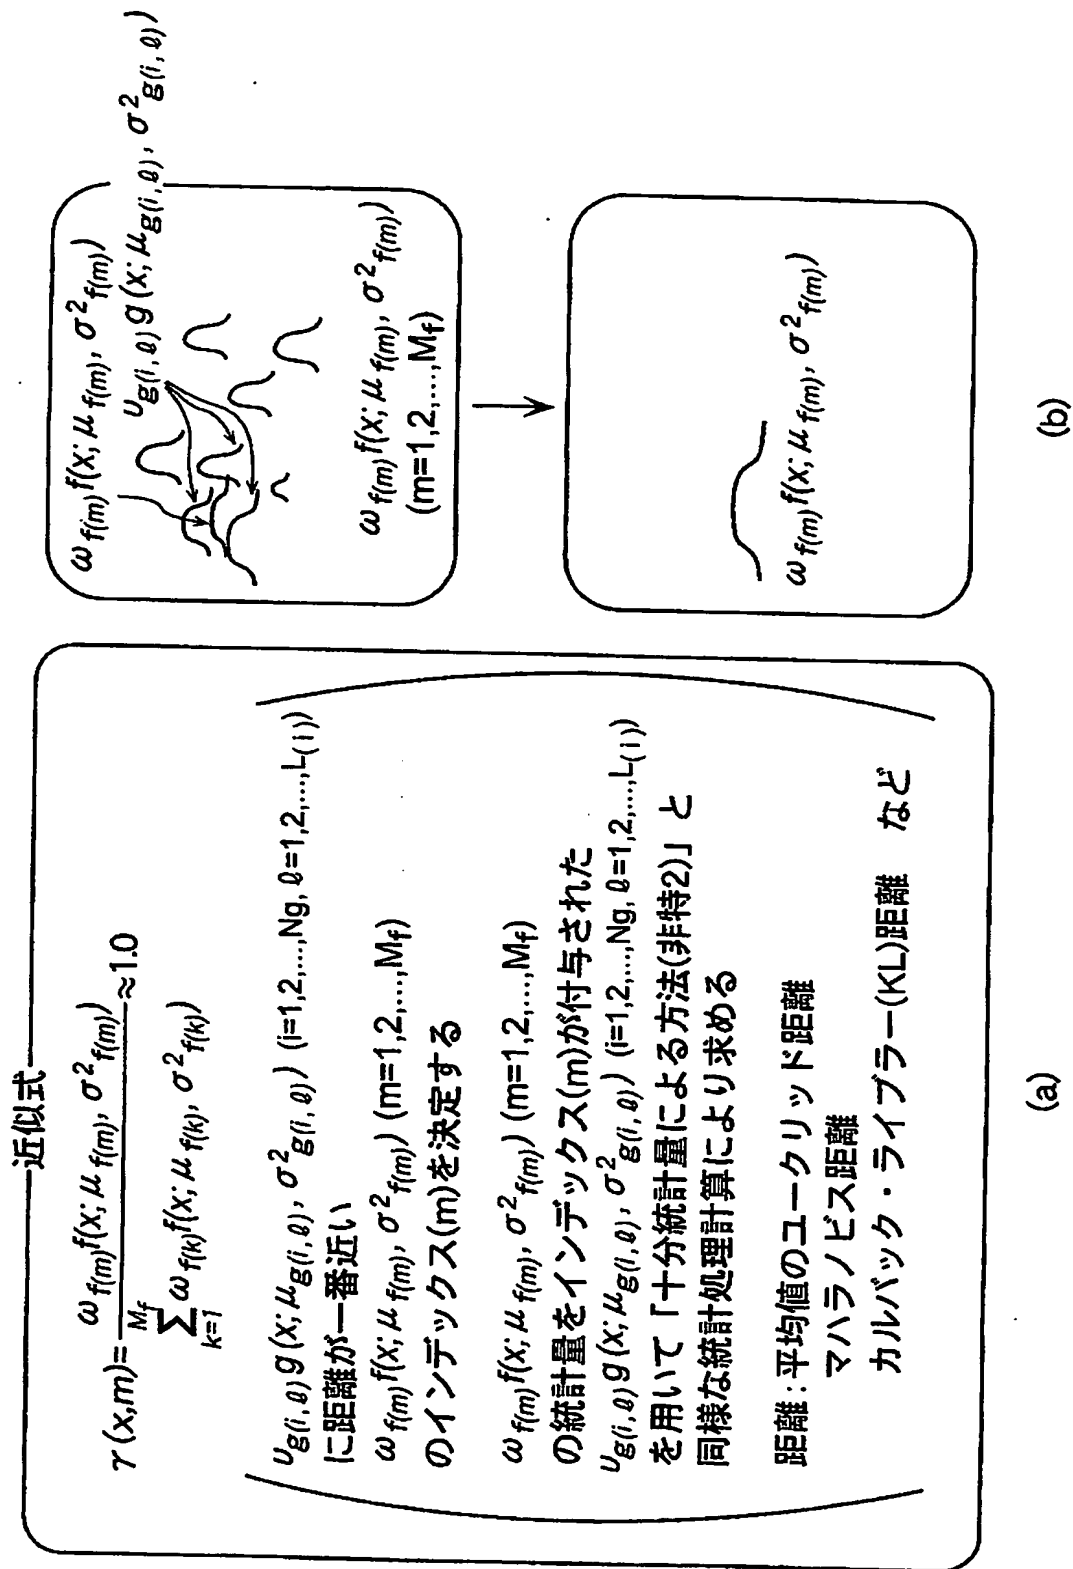 近似式
γ(x,m)= ω_{f(m)}f(x;μ_{f(m)}, σ²_{f(m)}) / Σ_{k=1}^{M_f} ω_{f(k)}f(x;μ_{f(k)}, σ²_{f(k)}) ≈1.0
υ_{g(i,ℓ)}g(x;μ_{g(i,ℓ)}, σ²_{g(i,ℓ)}) (i=1,2,...,Ng, ℓ=1,2,...,L_{(i)})
に距離が一番近い
ω_{f(m)}f(x;μ_{f(m)}, σ²_{f(m)}) (m=1,2,...,M_f)
のインデックス(m)を決定する
ω_{f(m)}f(x;μ_{f(m)}, σ²_{f(m)}) (m=1,2,...,M_f)
の統計量をインデックス(m)が付与された
υ_{g(i,ℓ)}g(x;μ_{g(i,ℓ)}, σ²_{g(i,ℓ)}) (i=1,2,...,Ng, ℓ=1,2,...,L_{(i)})
を用いて「十分統計量による方法(非特2)」と
同様な統計処理計算により求める
距離:平均値のユークリッド距離
マハラノビス距離
カルバック・ライブラー(KL)距離 など
(a)
ω_{f(m)}f(x;μ_{f(m)}, σ²_{f(m)})
υ_{g(i,ℓ)}g(x;μ_{g(i,ℓ)}, σ²_{g(i,ℓ)})
ω_{f(m)}f(x;μ_{f(m)}, σ²_{f(m)})
(m=1,2,...,M_f)
ω_{f(m)}f(x;μ_{f(m)}, σ²_{f(m)})
(b)